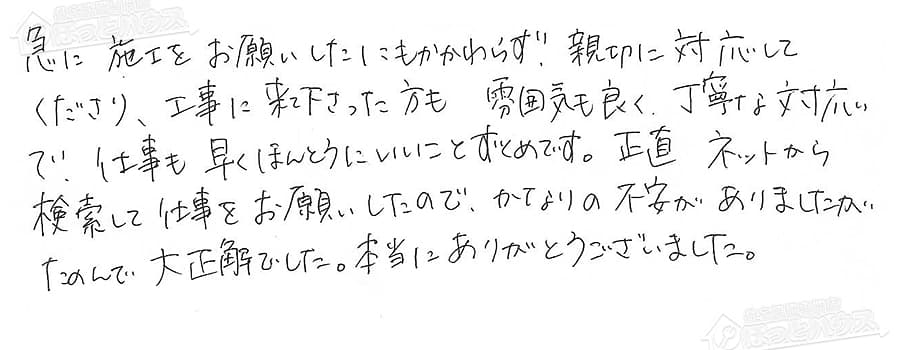 急に 施工を お願いしたにもかかわらず! 親切に 対応して
くださり、工事に 来て下さった 方も 雰囲気も良く、丁寧な 対応
で! 仕事も 早くほんとうにいいことずくめです。正直 ネットから
検索して 仕事を お願いしたので、かなりの 不安が ありましたが、
たのんで 大正解でした。本当に ありがとうございました。
ほっとハウス
ほっとハウス